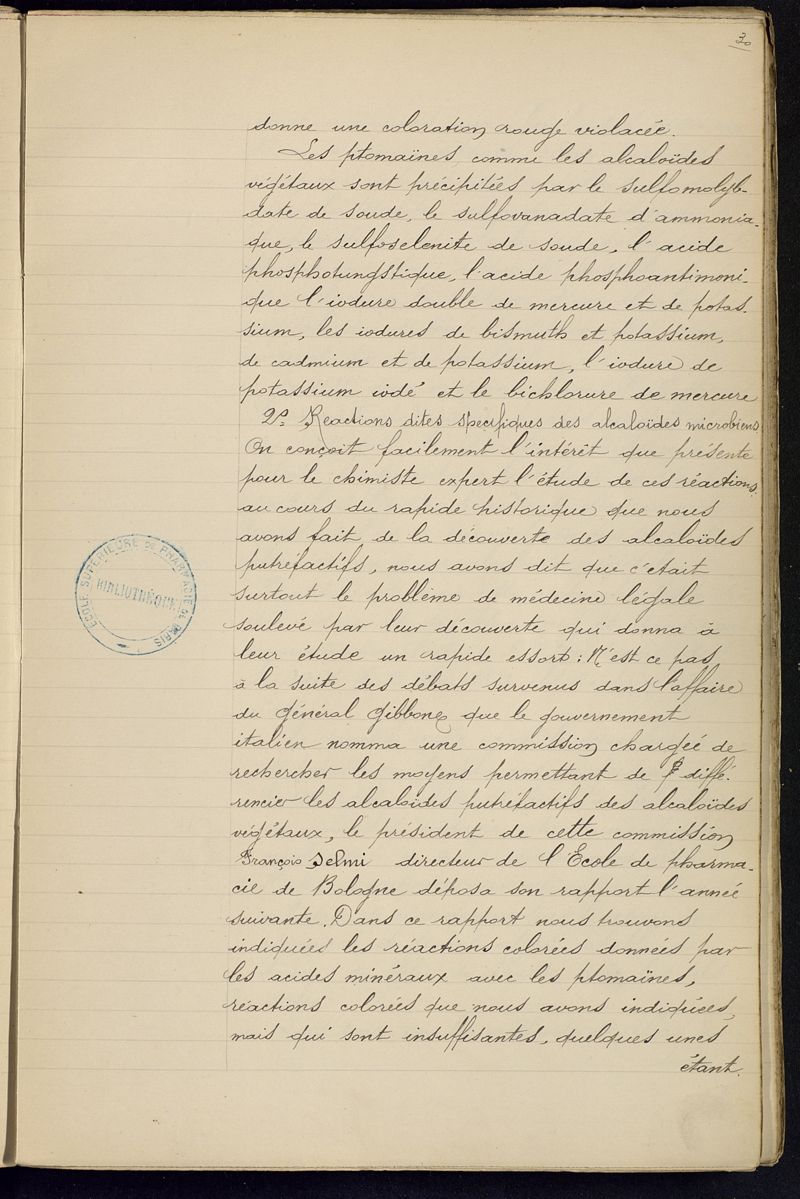 30
donne une coloration rouge violacée.
Les ptomaïnes comme les alcaloïdes
végétaux sont précipitées par le sulfomolyb-
date de soude, le sulfovanadate d'ammonia-
que, le sulfosélenite de soude, l'acide
phosphotungstique, l'acide phosphoantimoni-
que l'iodure double de mercure et de potas-
sium, les iodures de bismuth et potassium,
de cadmium et de potassium, l'iodure de
potassium iodé et le bichlorure de mercure
2º Réactions dites specifiques des alcaloïdes microbiens
On conçoit facilement l'intérêt que présente
pour le chimiste expert l'étude de ces réactions.
au cours du rapide historique que nous
avons fait, de la découverte des alcaloïdes
putréfactifs, nous avons dit que c'était
surtout le problème de médecine légale
soulevé par leur découverte qui donna à
leur étude un rapide essort : N'est ce pas
à la suite des débats survenus dans l'affaire
du général Gibbone que le gouvernement
italien nomma une commission chargée de
rechercher les moyens permettant de diffé-
rencier les alcaloïdes putréfactifs des alcaloïdes
végétaux, le président de cette commission
François Selmi directeur de l'École de pharma-
cie de Bologne déposa son rapport l'année
suivante. Dans ce rapport nous trouvons
indiquées les réactions colorées données par
les acides minéraux avec les ptomaïnes,
réactions colorées que nous avons indiquées,
mais qui sont insuffisantes, quelques unes
étant.
ÉCOLE SUPÉRIEURE DE PHARMACIE DE PARIS
BIBLIOTHÈQUE